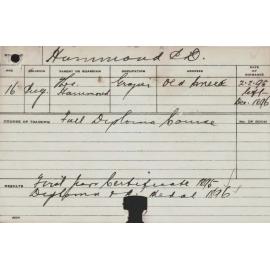 Hammond S. D.
AGE RELIGION PARENT OR GUARDIAN OCCUPATION ADDRESS DATE OF ENTRANCE
16 Thos. Hammond Grazier Old 2-2-95
left
Dec. 1896
COURSE OF TRAINING Full Diploma Course
RESULTS First year Certificate 1895
Diploma & Medal 1896